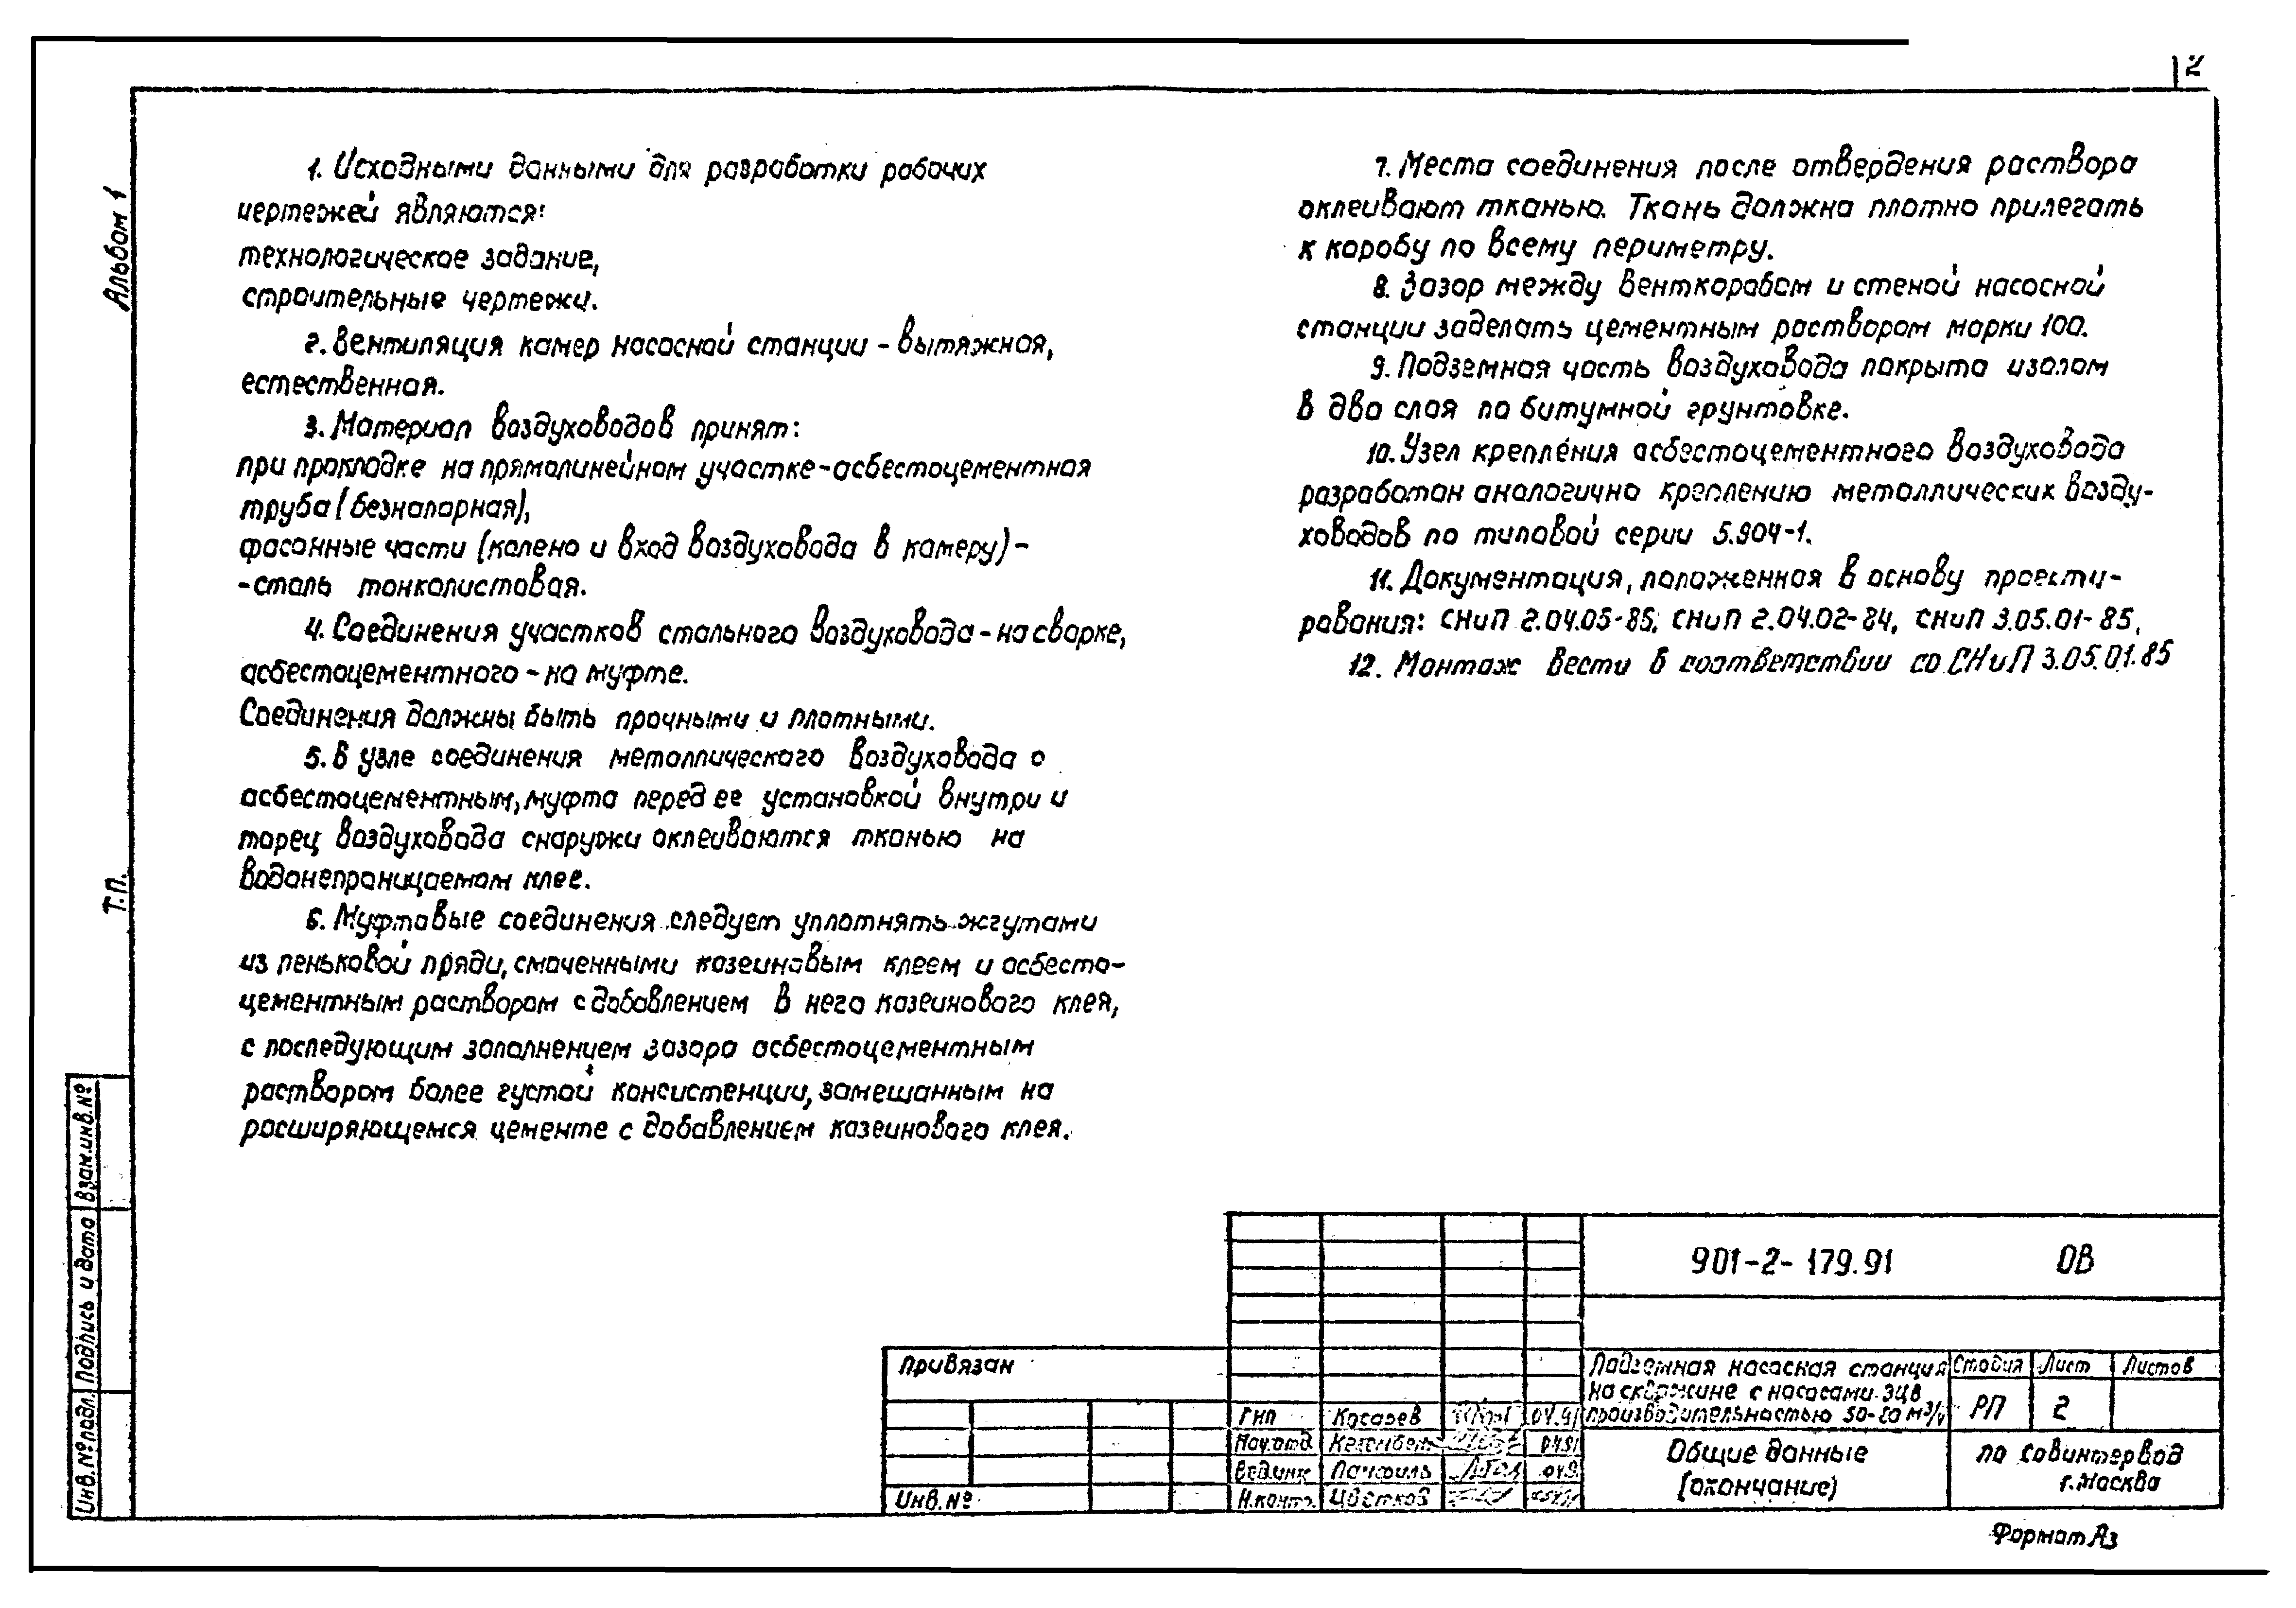 2
Альбом 1
Т.П.
1. Исходными данными для разработки рабочих
чертежей являются:
технологическое задание,
строительные чертежи.
2. Вентиляция камер насосной станции - вытяжная,
естественная.
3. Материал воздуховодов принят:
при прокладке на прямолинейном участке - асбестоцементная
труба (безнапорная),
фасонные части (колено и вход воздуховода в камеру) -
- сталь тонколистовая.
4. Соединения участков стального воздуховода - на сварке,
асбестоцементного - на муфте.
Соединения должны быть прочными и плотными.
5. В узле соединения металлического воздуховода с
асбестоцементным, муфта перед ее установкой внутри и
торец воздуховода снаружи оклеиваются тканью на
водонепроницаемом клее.
6. Муфтовые соединения следует уплотнять жгутами
из пеньковой пряди, смоченными казеиновым клеем и асбесто-
цементным раствором с добавлением в него казеинового клея,
с последующим заполнением зазора асбестоцементным
раствором более густой консистенции, замешанным на
расширяющемся цементе с добавлением казеинового клея.
7. Места соединения после отвердения раствора
оклеивают тканью. Ткань должна плотно прилегать
к коробу по всему периметру.
8. Зазор между венткоробом и стеной насосной
станции заделать цементным раствором марки 100.
9. Подземная часть воздуховода покрыта изолом
в два слоя по битумной грунтовке.
10. Узел крепления асбестоцементного воздуховода
разработан аналогично креплению металлических возду-
ховодов по типовой серии 5.904-1.
11. Документация, положенная в основу проекти-
рования: СНиП 2.04.05-85, СНиП 2.04.02-84, СНиП 3.05.01-85,
12. Монтаж вести в соответствии со СНиП 3.05.01.85
Взам.инв.№
Подпись и дата
Инв.№ подл.
901-2-179.91 ОВ
Привязан
Инв.№
Подземная насосная станция
на скважине с насосами ЭЦВ
производительностью 50-80 м³/ч
Стадия Лист Листов
РП 2
ГИП Косарев 04.91
Нач.отд 04.91
Вед.инж Панфиль 04.9
Н.контр. Цветков
Общие данные
(окончание)
ПО Совинтервод
г.Москва
Формат А3